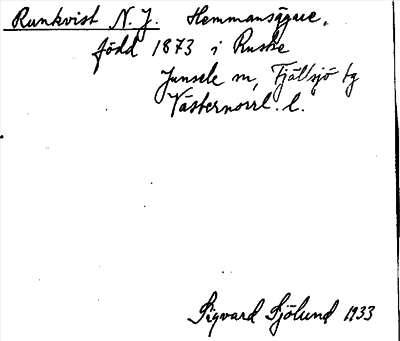 Runkvist N. J. Hemmansägare,
född 1873 i Ruske
Junsele m, Fjällsjö tg
Västernorrl. l.
Sigvard Sjölund 1933